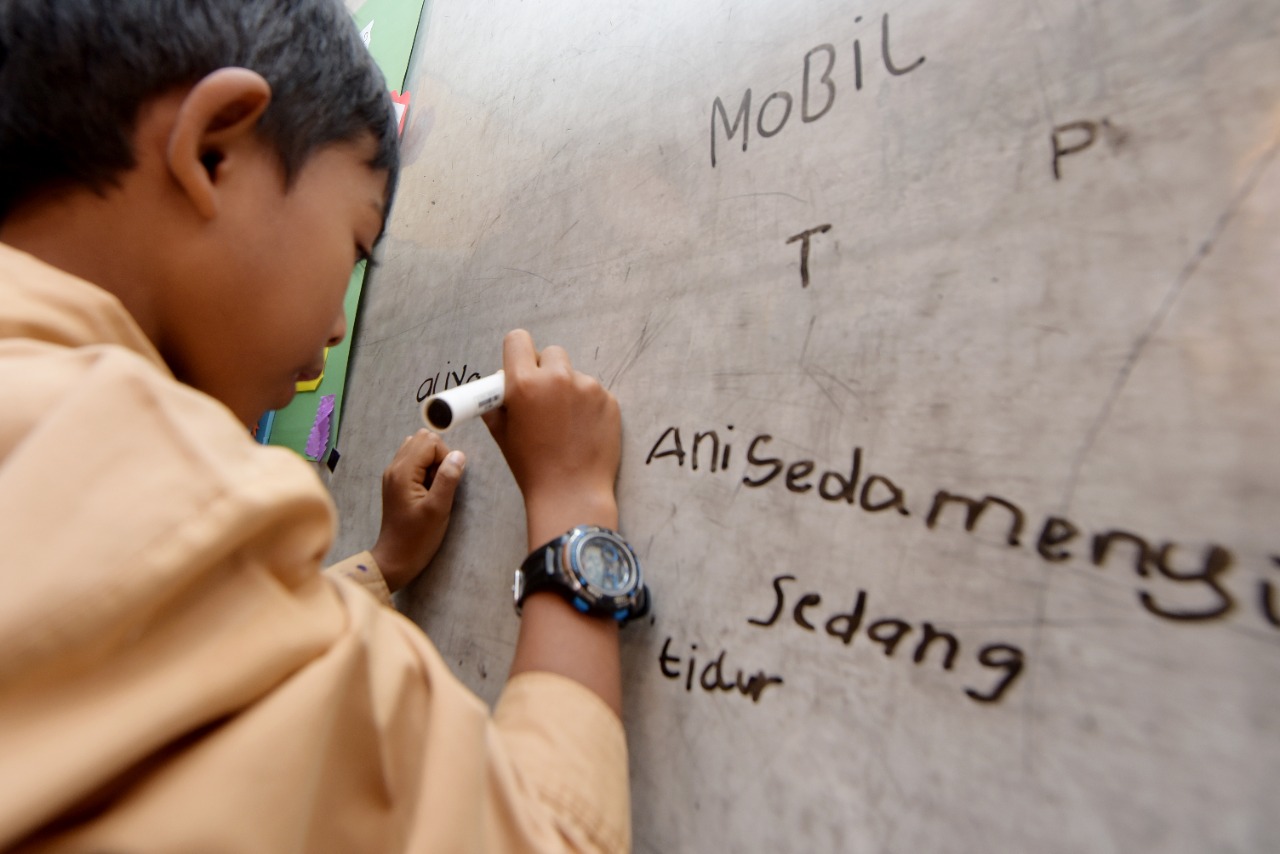 MOBIL
P
T
Ani Seda menyi
Sedang
tidur